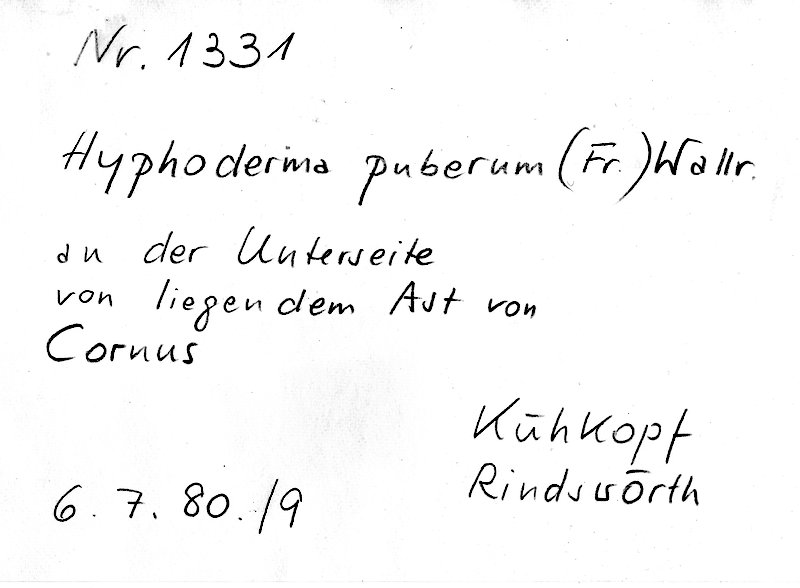 Nr. 1331
Hyphoderma puberum (Fr.) Wallr.
an der Unterseite
von liegendem Ast von
Cornus
Kühkopf
Rindswörth
6. 7. 80. /9